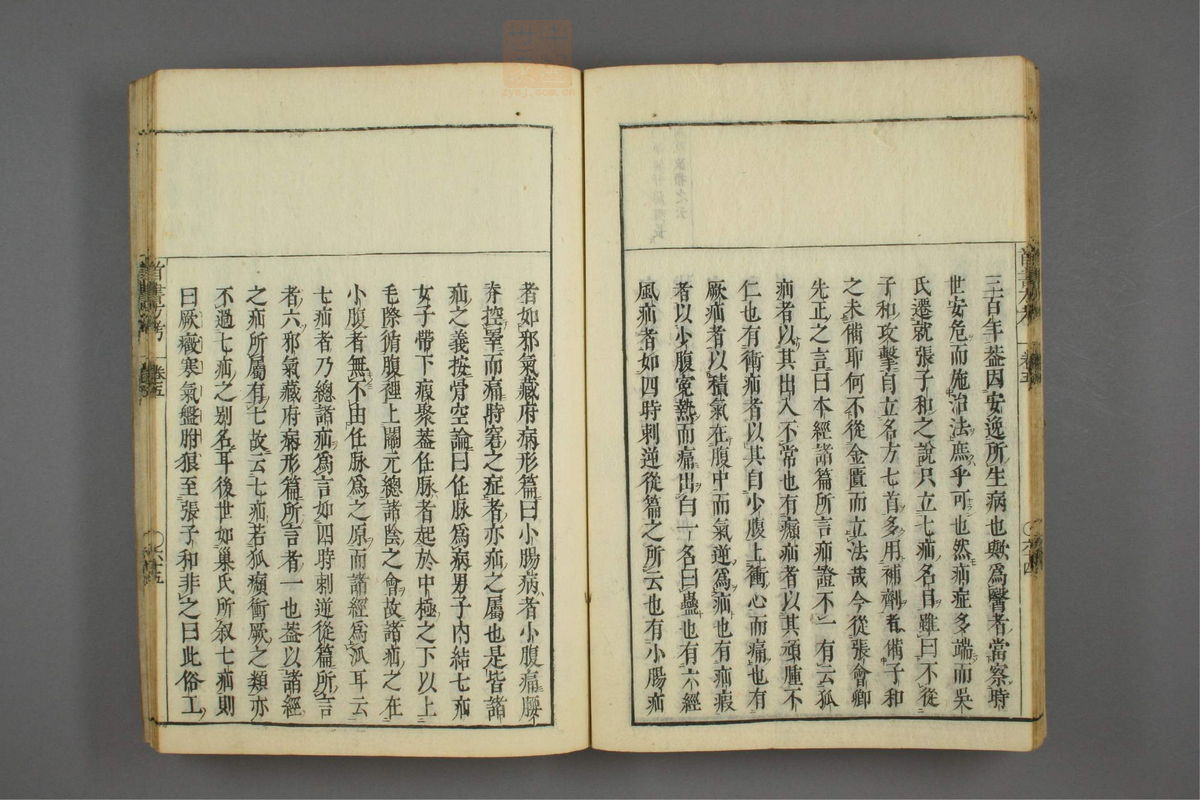 三百年蓋因安逸所生病也歟爲醫者當察時
世安危而施治法庶乎可也然疝症多端而吳
氏遷就張子和之說只立七疝名目雖曰不從
子和攻擊自立名方七首多用補劑者備子和
之未備耶何不從金匱而立法哉今從張會卿
先正之言曰本經諸篇所言疝證不一有云狐
疝者以其出入不常也有㿗疝者以其頑腫不
仁也有衝疝者以其自少腹上衝心而痛也有
厥疝者以積氣在腹中而氣逆爲疝也有疝瘕
者以少腹寃熱而痛出白一名曰蠱也有六經
風疝者如四時刺逆從篇之所云也有小腸疝
卷五
六十四
者如邪氣藏府病形篇曰小腸病者小腹痛腰
脊控睪而痛時窘之症者亦疝之屬也是皆諸
疝之義按骨空論曰任脉爲病男子內結七疝
女子帶下瘕聚蓋任脉者起於中極之下以上
毛際循腹裡上關元總諸陰之會故諸疝之在
小腹者無不由任脉爲之原而諸經爲派耳云
七疝者乃總諸疝爲言如四時刺逆從篇所言
者六邪氣藏府病形篇所言者一也蓋以諸經
之疝所屬有七故云七疝若狐㿗衝厥之類亦
不過七疝之別名耳後世如巢氏所叙七疝則
曰厥癥寒氣盤胕狼至張子和非之曰此俗工
首書方考
卷五
六十五
zysj.com.cn